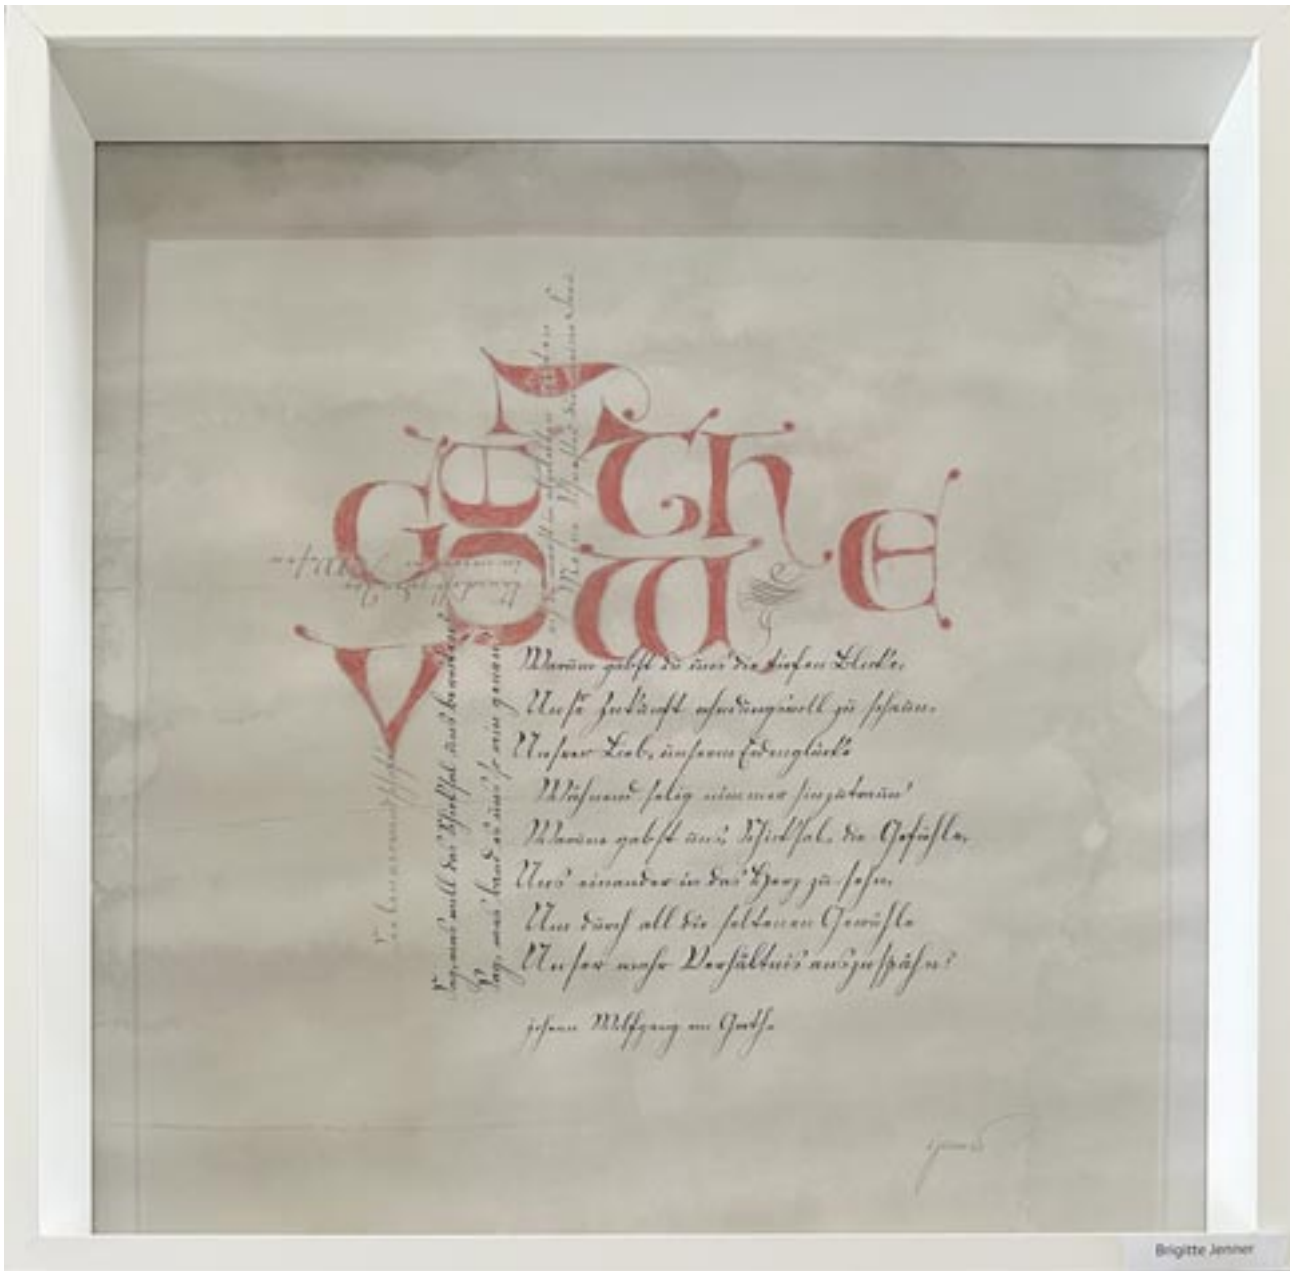 Goethe
JvW
Warum gabst du uns die tiefen Blicke,
Unsre Zukunft ahndungsvoll zu schaun,
Unsrer Lieb, unserm Erdenglücke
Wähnend selig nimmer hinzutraun?
Warum gabst uns, Schicksal, die Gefühle,
Uns einander in das Herz zu sehn,
Um durch all die seltenen Gewühle
Unser wahr Verhältnis auszuspähn?
Johann Wolfgang von Goethe
Sag, was will das Schicksal uns bereiten?
Sag, wie band es uns so rein genau?
Brigitte Jenner